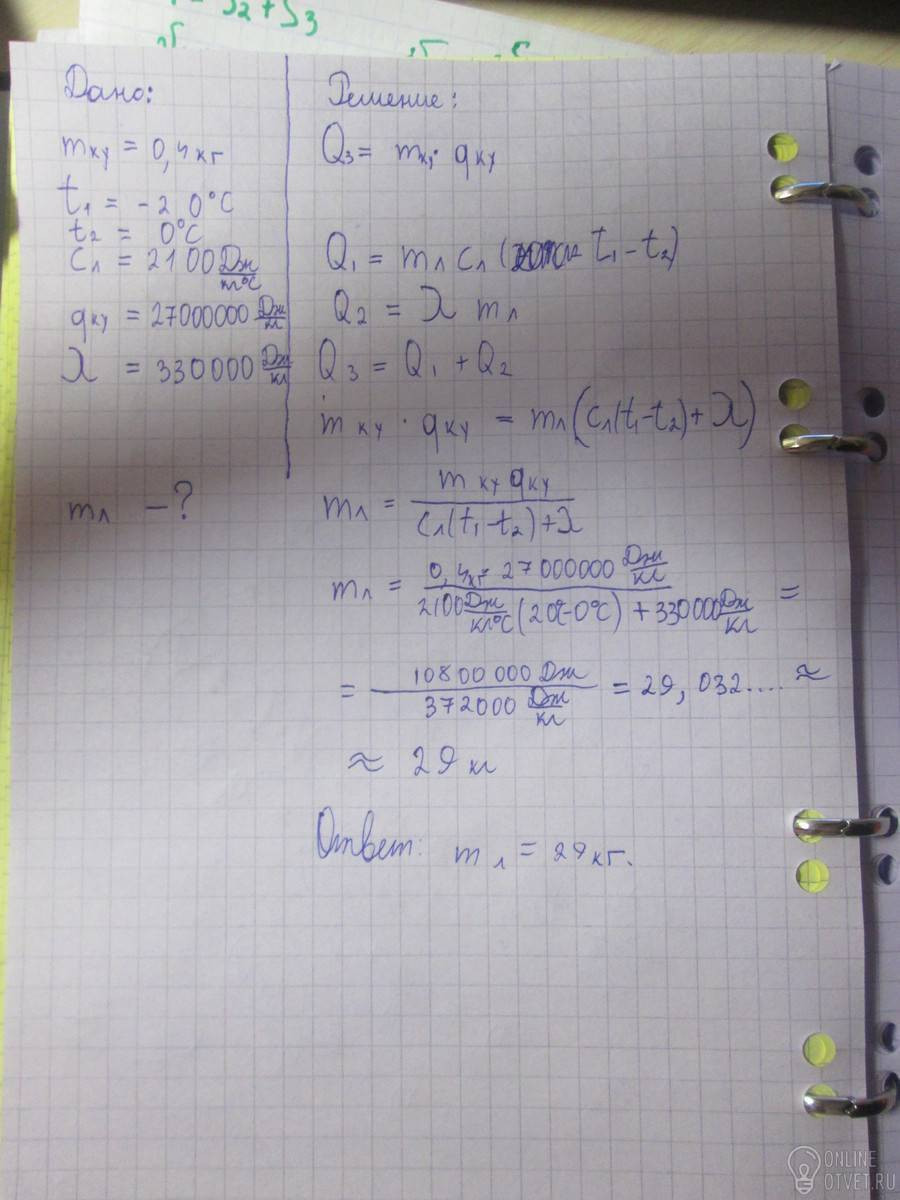 S₂ + S₃
Дано:
m ку = 0,4 кг
t₁ = -20°C
t₂ = 0°C
cл = 2100 Дж/кг°C
qку = 27000000 Дж/кг
λ = 330000 Дж/кг
mл - ?
Решение:
Q₃ = mку · qку
Q₁ = mл cл (t₁ - t₂)
Q₂ = λ mл
Q₃ = Q₁ + Q₂
m ку · qку = mл (cл(t₁-t₂)+λ)
mл = m ку qку / cл(t₁-t₂)+λ
mл = 0,4кг · 27000000 Дж/кг / 2100 Дж/кг°C (20°C-0°C) + 330000 Дж/кг =
= 10800 000 Дж / 372000 Дж/кг = 29, 032.... ≈
≈ 29 кг
Ответ: m л = 29 кг.
ONLINE
OTVET.RU